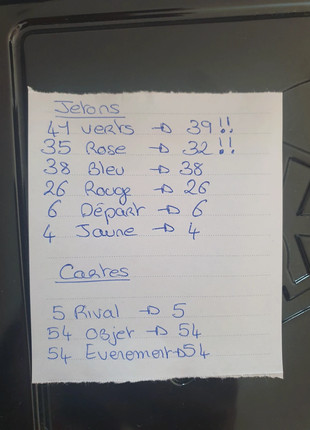 Jetons
41 verts → 39!!
35 Rose → 32!!
38 Bleu → 38
26 Rouge → 26
6 Départ → 6
4 Jaune → 4
Cartes
5 Rival → 5
54 Objet → 54
54 Evenement → 54